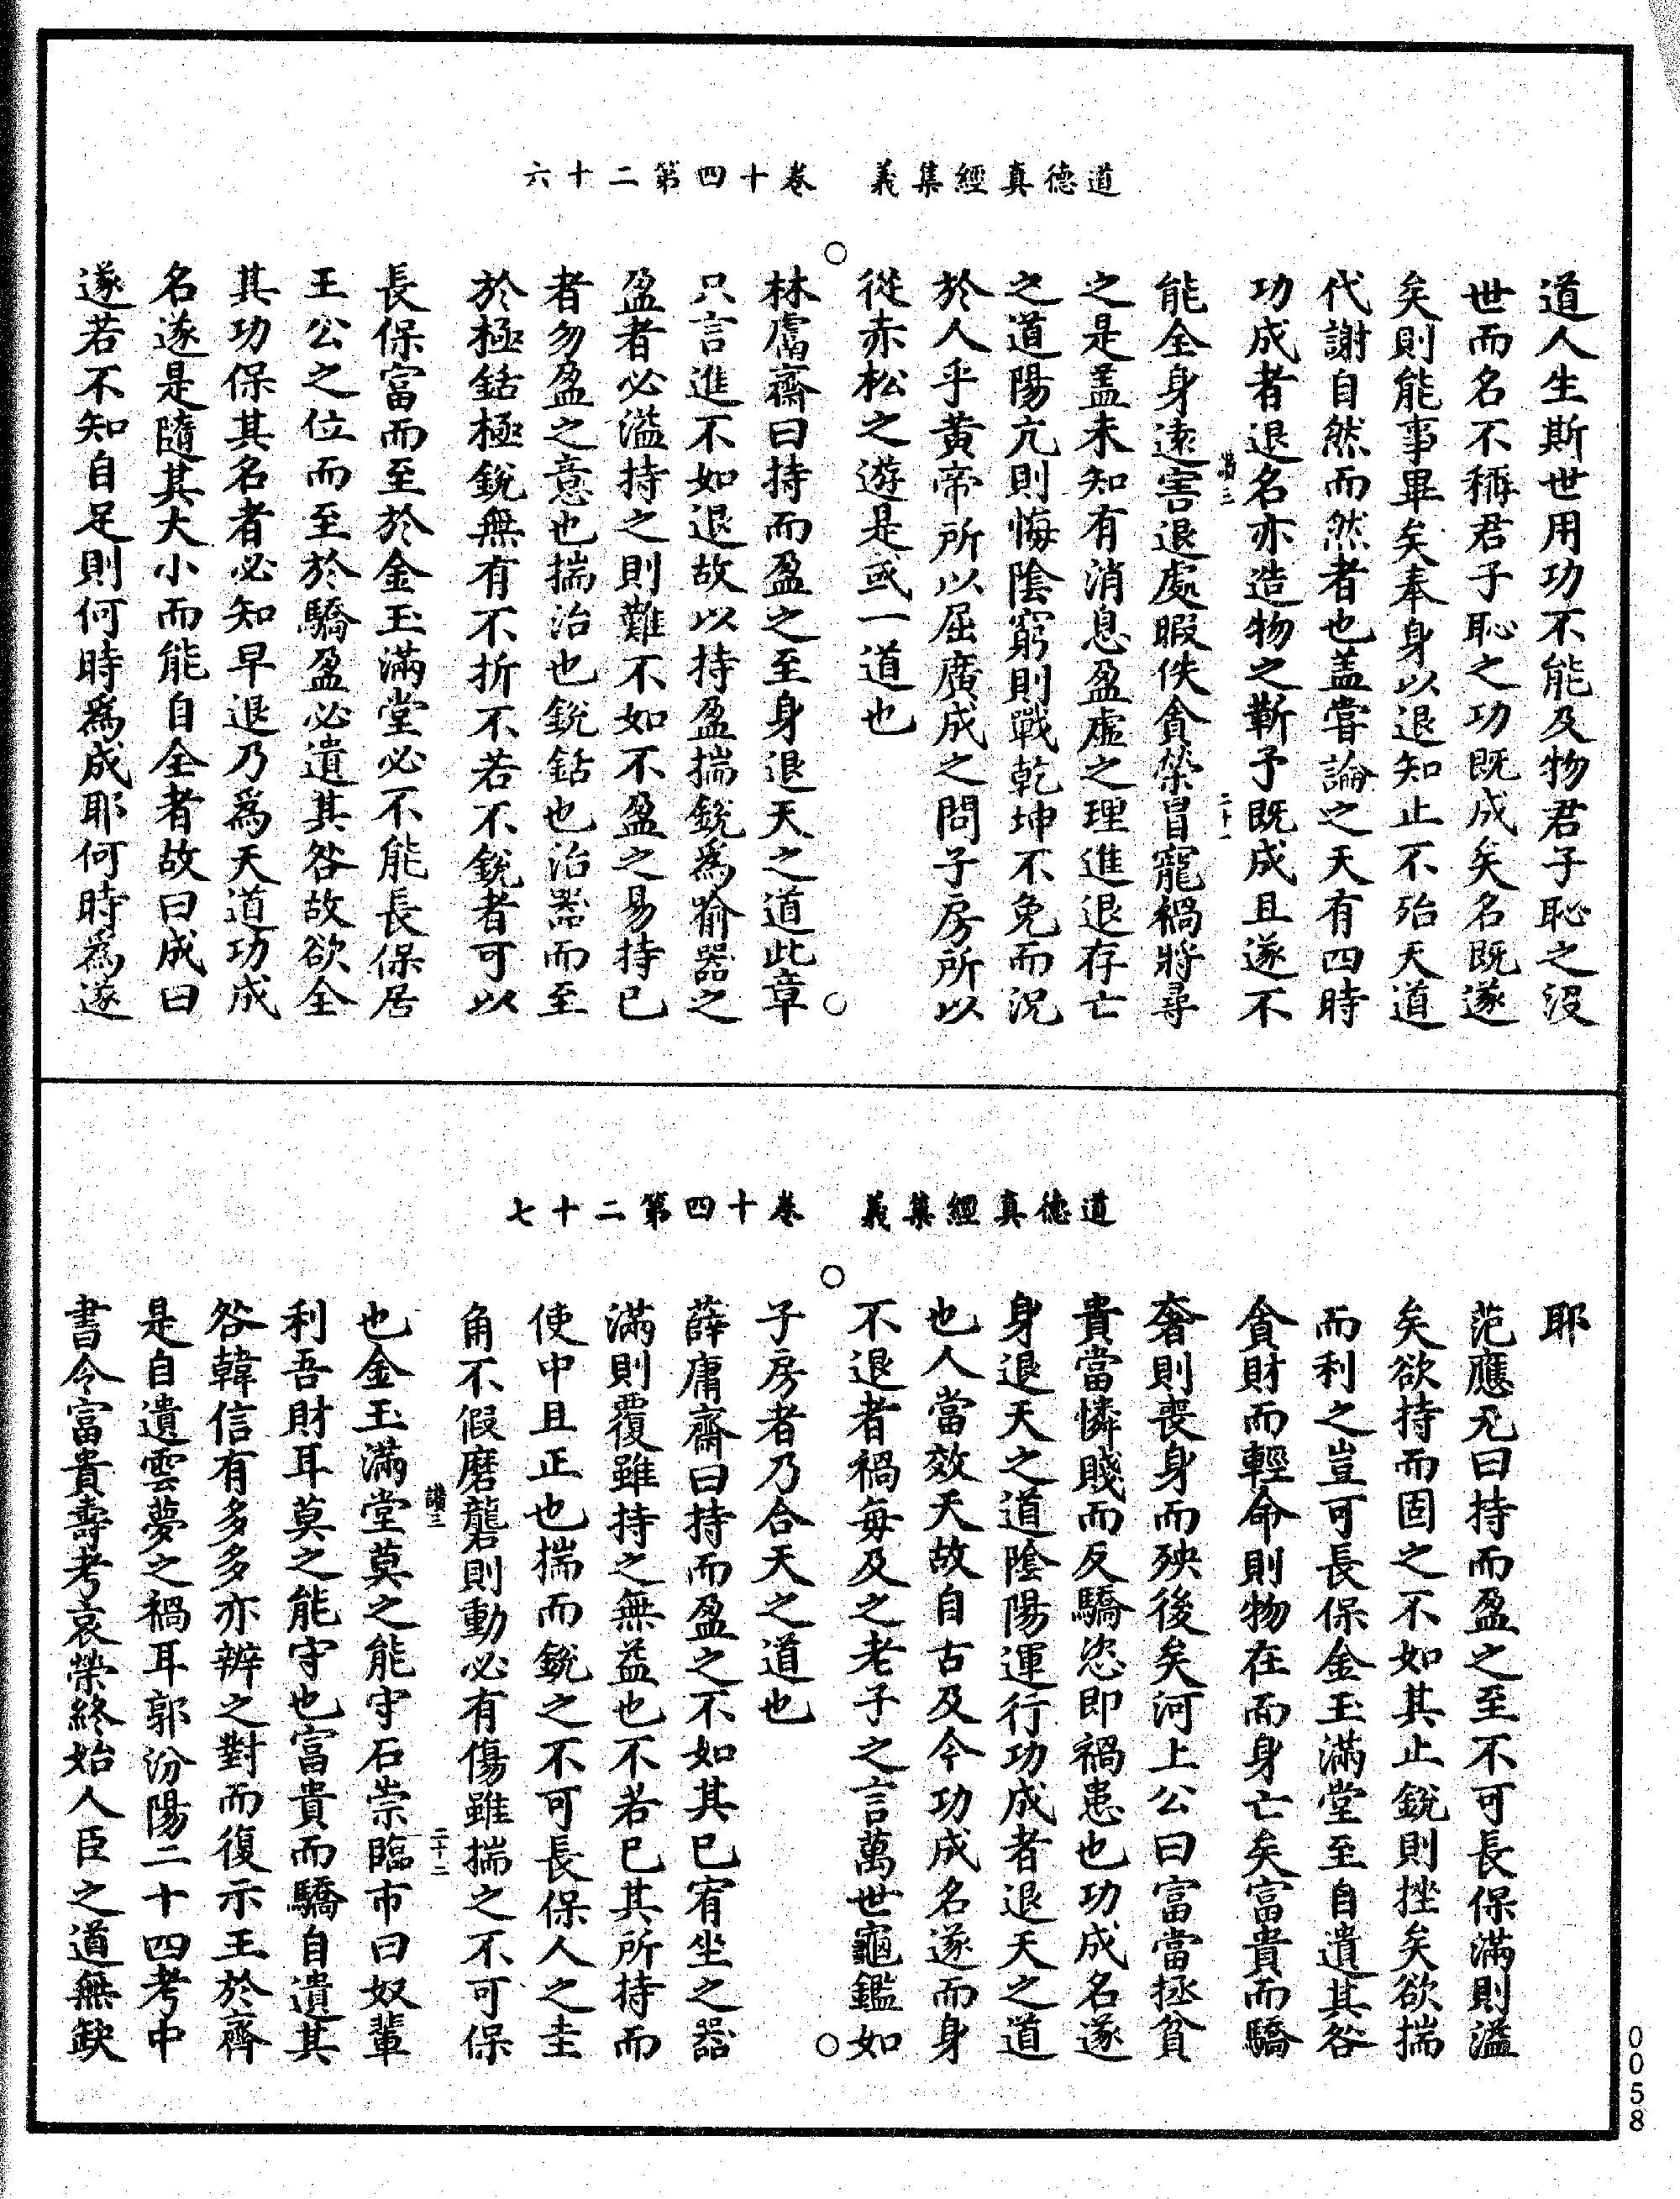 道德真經集義　卷十四第二十六
道人生斯世用功不能及物君子恥之沒
世而名不稱君子恥之功既成矣名既遂
矣則能事畢矣奉身以退知止不殆天道
代謝自然而然者也盖嘗論之天有四時
功成者退名亦造物之靳予既成且遂不
二十一
能全身遠害退處暇佚貪榮冒寵禍將尋
之是盖未知有消息盈虛之理進退存亡
之道陽亢則悔陰窮則戰乾坤不免而況
於人乎黃帝所以屈廣成之問子房所以
從赤松之遊是或一道也
林鬳齋曰持而盈之至身退天之道此章
只言進不如退故以持盈揣銳爲喻器之
盈者必溢持之則難不如不盈之易持已
者勿盈之意也揣治也銳銛也治器而至
於極銛極銳無有不折不若不銳者可以
長保富而至於金玉滿堂必不能長保居
王公之位而至於驕盈必遺其咎故欲全
其功保其名者必知早退乃爲天道功成
名遂是隨其大小而能自全者故曰成曰
遂若不知自足則何時爲成耶何時爲遂
道德真經集義　卷十四第二十七
耶
范應元曰持而盈之至不可長保滿則溢
矣欲持而固之不如其止銳則挫矣欲揣
而利之豈可長保金玉滿堂至自遺其咎
貪財而輕命則物在而身亡矣富貴而驕
奢則喪身而殃後矣河上公曰富當拯貧
貴當憐賤而反驕恣即禍患也功成名遂
身退天之道陰陽運行功成者退天之道
也人當效天故自古及今功成名遂而身
不退者禍每及之老子之言萬世龜鑑如
子房者乃合天之道也
薛庸齋曰持而盈之不如其已宥坐之器
滿則覆雖持之無益也不若已其所持而
使中且正也揣而銳之不可長保人之圭
角不假磨礲則動必有傷雖揣之不可保
二十二
也金玉滿堂莫之能守石崇臨市曰奴輩
利吾財耳莫之能守也富貴而驕自遺其
咎韓信有多多亦辨之對而復示王於齊
是自遺雲夢之禍耳郭汾陽二十四考中
書令富貴壽考哀榮終始人臣之道無缺
0058